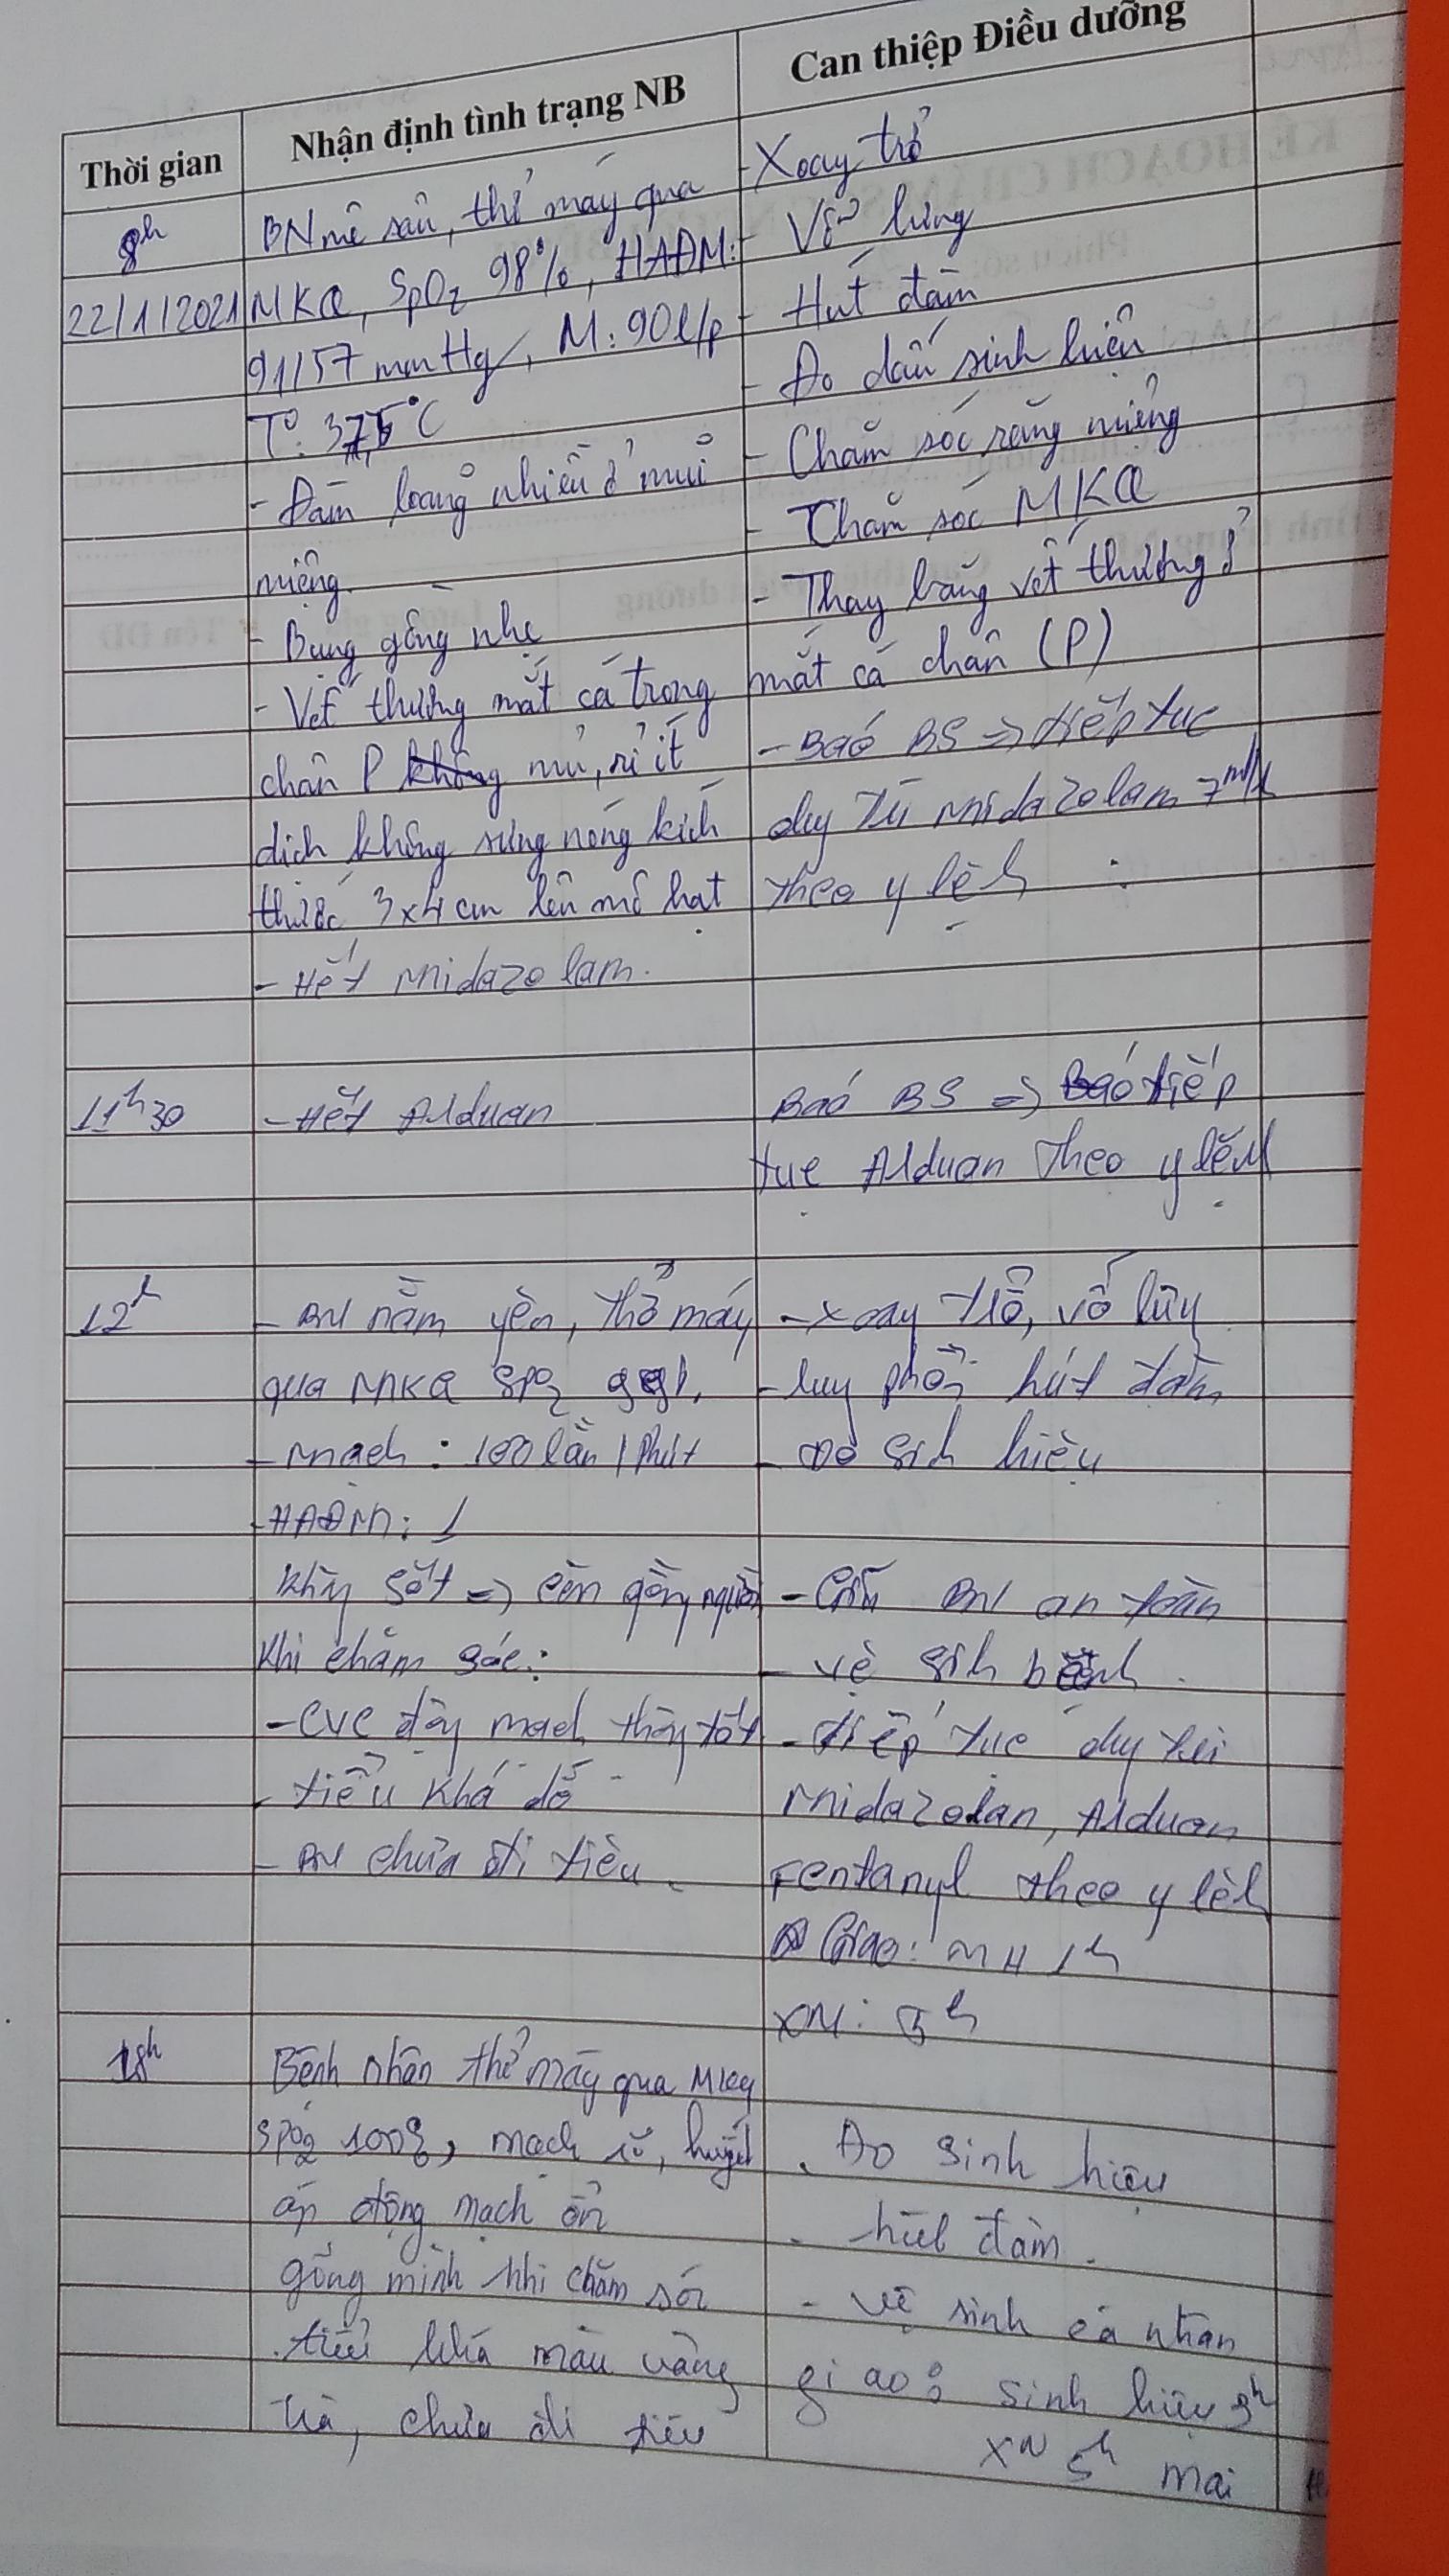 Thời gian
Nhận định tình trạng NB
Can thiệp Điều dưỡng
8h
22/1/2021
BN mê sâu, thở máy qua
MKQ, SpO2 98%, HAĐM:
91/57 mmHg, M: 90l/p
T°: 37,5°C
- Đàm loãng nhiều ở mũi
miệng
- Bụng gồng nhẹ
- Vết thương mắt cá trong
chân P không mủ, rỉ ít
dịch không sưng nóng kích
thước 3x4 cm lên mô hạt
- Hết Midazolam.
- Xoay trở
- Vỗ lưng
- Hút đàm
- Đo dấu sinh hiệu
- Chăm sóc răng miệng
- Chăm sóc MKQ
- Thay băng vết thương ở
mắt cá chân (P)
- Báo BS => tiếp tục
duy trì Midazolam 7ml/h
theo y lệnh
11h30
- Hết Alduan
Báo BS => tiếp
tục Alduan theo y lệnh
12h
- BN nằm yên, thở máy
qua MKQ SpO2
- Mạch: 100 lần/phút
- HAĐM:
không sốt => còn gồng người
khi chăm sóc.
- CVC đẩy mạch thông tốt
- tiểu khá đỏ
- BN chưa đi tiêu
- xoay trở, vỗ lưng
- hút đàm
- Đo sinh hiệu
- Giữ BN an toàn
- vệ sinh
- tiếp tục duy trì
Midazolam, Alduan
Fentanyl theo y lệnh
Giao: 1h
XN: 5h
18h
Bệnh nhân thở máy qua MKQ
SpO2 100%, mạch rõ, huyết
áp động mạch ổn
gồng mình khi chăm sóc
tiểu khá màu vàng
trà, chưa đi tiêu
- Đo sinh hiệu
- hút đàm.
- vệ sinh cá nhân
giao: sinh hiệu 3h
XN 5h mai